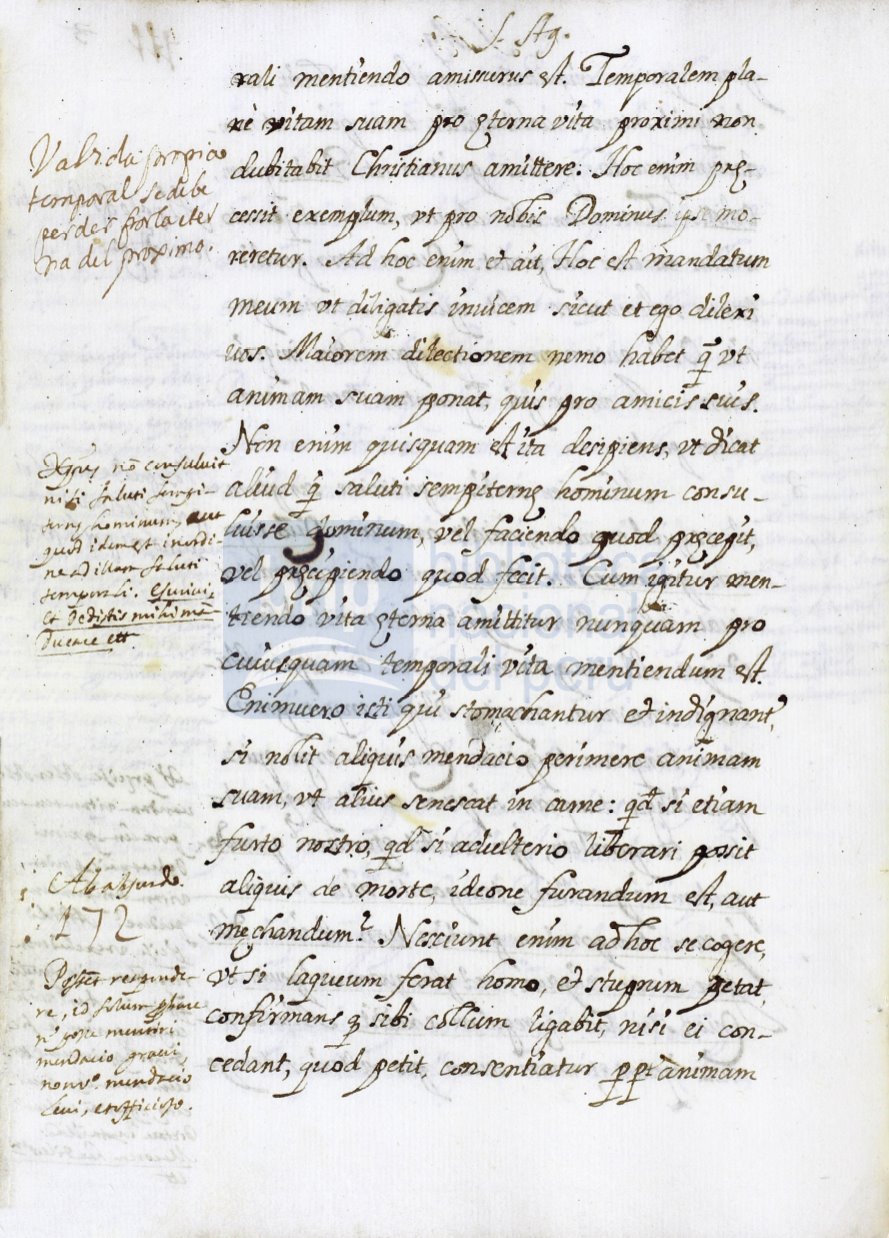 S. Ag.
rali mentiendo amissurus est. Temporalem pla-
nè vitam suam pro ęterna vita proximi non
dubitabit Christianus amittere. Hoc enim prę-
cessit exemplum, vt pro nobis Dominus ipse mo-
reretur. Ad hoc enim et ait, Hoc est mandatum
meum vt diligatis inuicem sicut et ego dilexi
uos. Maiorem dilectionem nemo habet q̃ vt
animam suam ponat, quis pro amicis suis.
Non enim quisquam est ita desipiens, vt dicat
aliud q̃ saluti sempiternę hominum consu-
luisse dominum, vel faciendo quod pręcepit,
vel pręcipiendo quod fecit. Cum igitur men-
tiendo vita ęterna amittitur nunquam pro
cuiusquam temporali vita mentiendum est.
Enimuero isti qui stomachantur et indignant,
si nolit aliquis mendacio perimere animam
suam, vt alius senescat in carne: qd si etiam
furto nostro, qd si adulterio liberari possit
aliquis de morte, ideone furandum est, aut
męchandum? Nesciunt enim ad hoc se cogere,
vt si laqueum ferat homo, et stuprum petat,
confirmans q̃ sibi collum ligabit, nisi ei con-
cedant, quod petit, consentiatur ꝓpt animam
Va vida propia
temporal se debe
perder por la eter
na del proximo.
nõ consuluit
nisi saluti sempi-
ternę hominum, aut
quod idem est inordi-
ne ad illam saluti
temporali.
et dedistis mihi
Ab absurdo.
172
Posset responde-
re, id solum
posse mentiri
mendacio graui,
non mendacio
leui, et officioso.